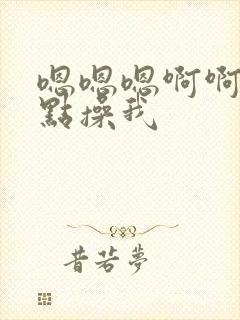 嗯嗯嗯啊啊
點操我
昔若夢